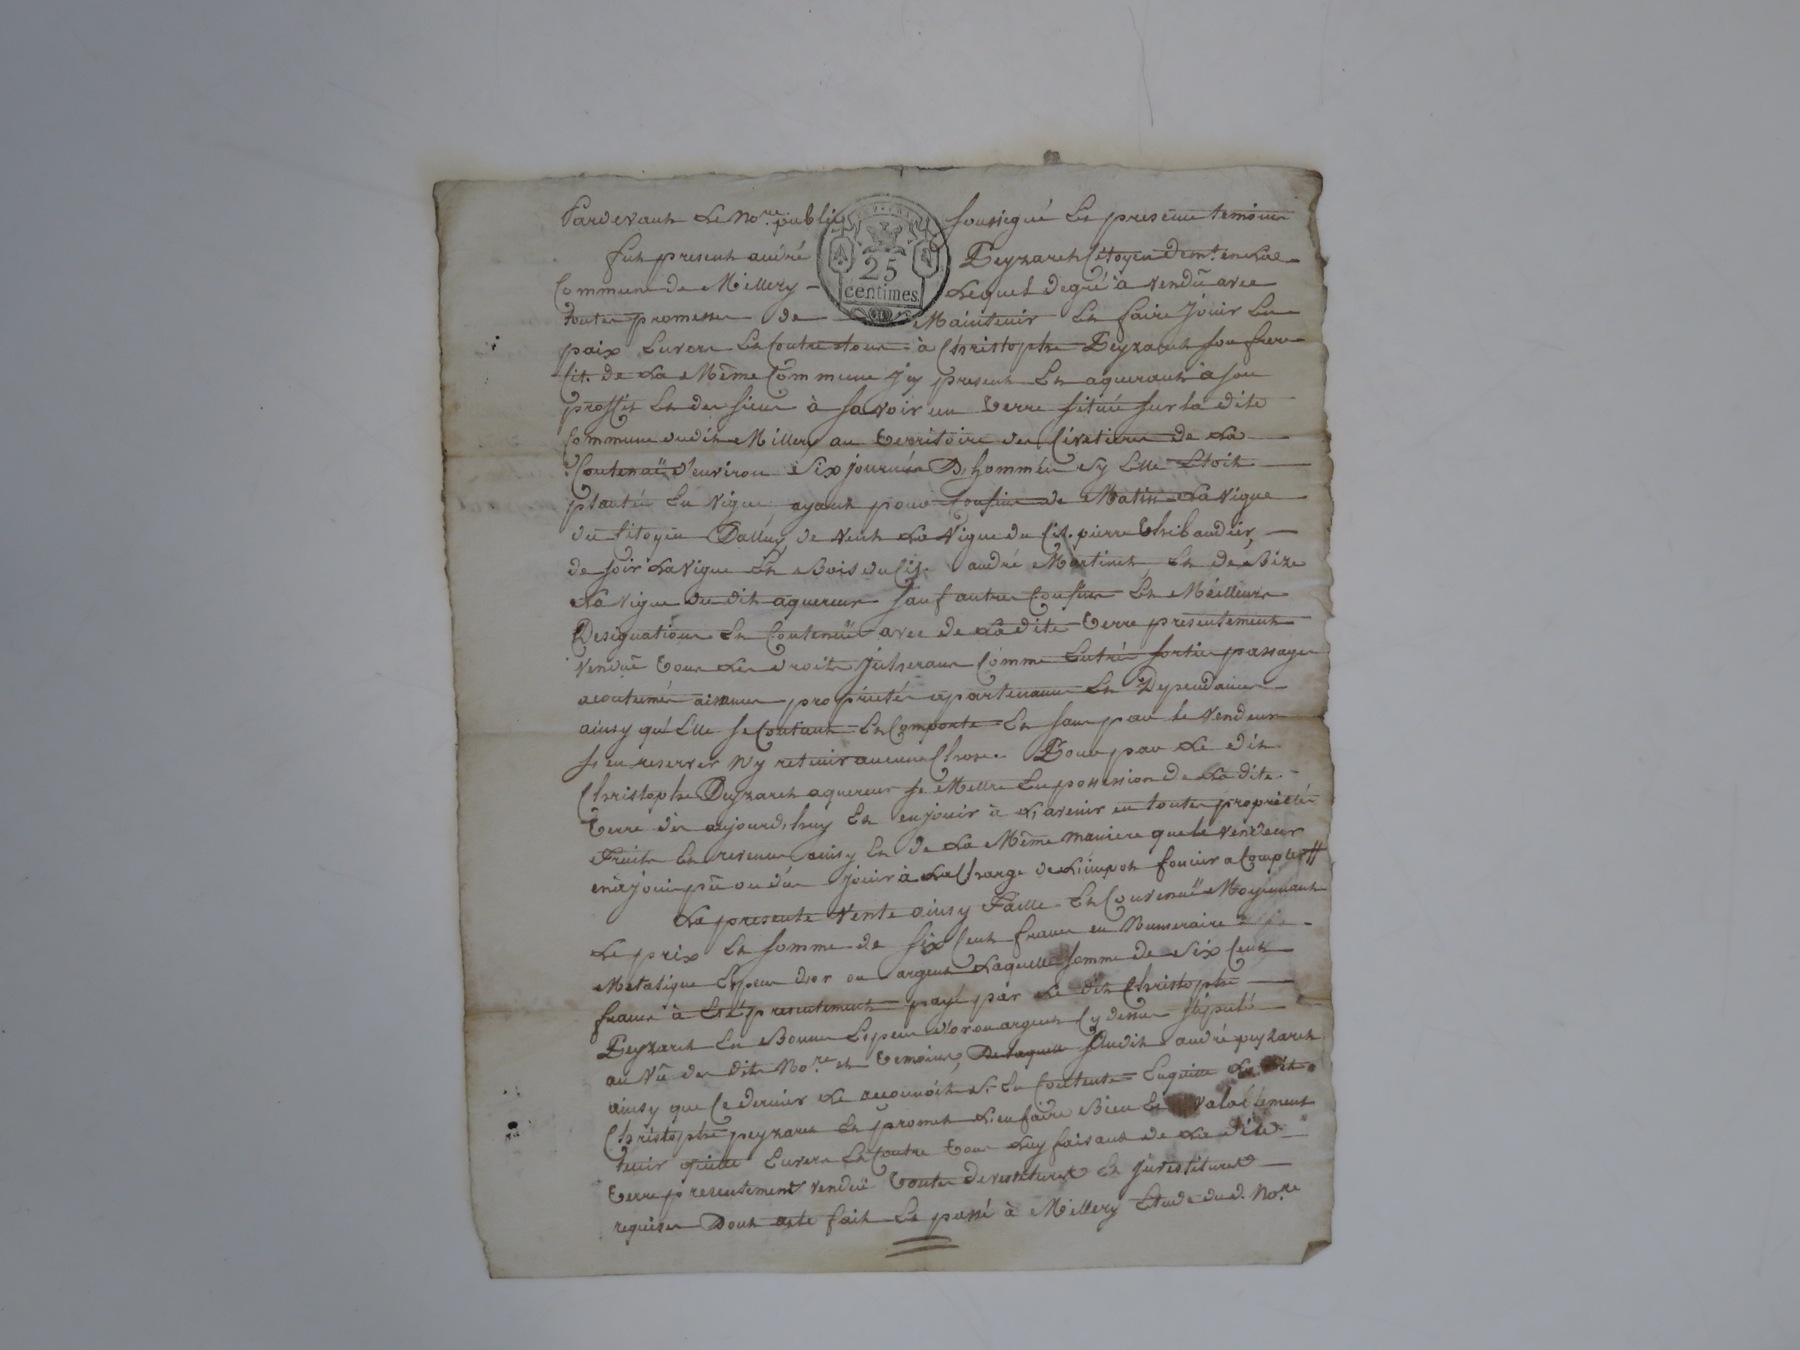 Pardevant Le No.re public soussigné Et presents temoins
25
centimes.
fut present andré Peyzaret Citoyen dem.t en La
Commune de Millery Lequel de gré à vendu avec
toutes promesses de Maintenir Et faire Jouir En
paix Envers Et Contre tous à Christophe Peyzaret son frere
Cit. de La Même Commune Jcy present Et aquerant à son
proffit Et des siens à savoir un Terre située sur la dite
Commune dudit Millery au Territoire des de La
Contenuë d'environ six journées D'hommées sy Elle Etoit
plantée En Vigne, ayant pour Confins de Matin La Vigne
du Citoyen Dalluy, de Vent La Vigne du Cit. pierre Thibaudier,
de soir La Vigne Et Bois du Cit. andré Martinet Et de Bize
La Vigne du dit aquereur sauf autres Confins Et Meilleure
Designations Et Contenuë avec de La dite Terre presentement
Venduë Tous Les droits Juherans Comme Entrée sortie passages
acoutumés aisances proprietés apartenances Et Dependances
ainsy qu'Elle se Contient Et Comporte Et sans par le Vendeur
s'en reserver Ny retenir aucune Chose. Pour par Le dit
Christophe Peyzaret aquereur se Mettre En possession de La dite
Terre dès aujourd,huy Et en jouir à L'avenir en toutes proprietés
Fruits Et revenus ainsy Et de La Même maniere que le Vendeur
en a joui pû ou dû jouir à La Charge de L'impot foncier a Compter #
La presente Vente ainsy Faitte Et Convenuë Moyennant
Le prix Et somme de six Cent francs en Numeraire
Metalique Especes d'or ou argent Laquelle somme de six Cent
francs à Eté presentement payé par Le dit Christophe
Peyzaret En Bonnes Especes d'or ou argent Cy dessus stipulé
au Vû des dits No.re et Temoins, De laquelle sudit andré peyzaret
ainsy que Ce dernier Le reconnoit s'En Contente Enquitte Le dit
Christophe peyzaret Et promet L'en faire Bien Et Valablement
tenir quitte Envers Et Contre Tous Luy faisant de La dite
Terre presentement Venduë Toutes devestitures Et Jnvestitures
requises Dont acte fait Et passé à Millery Etude dud. No.re